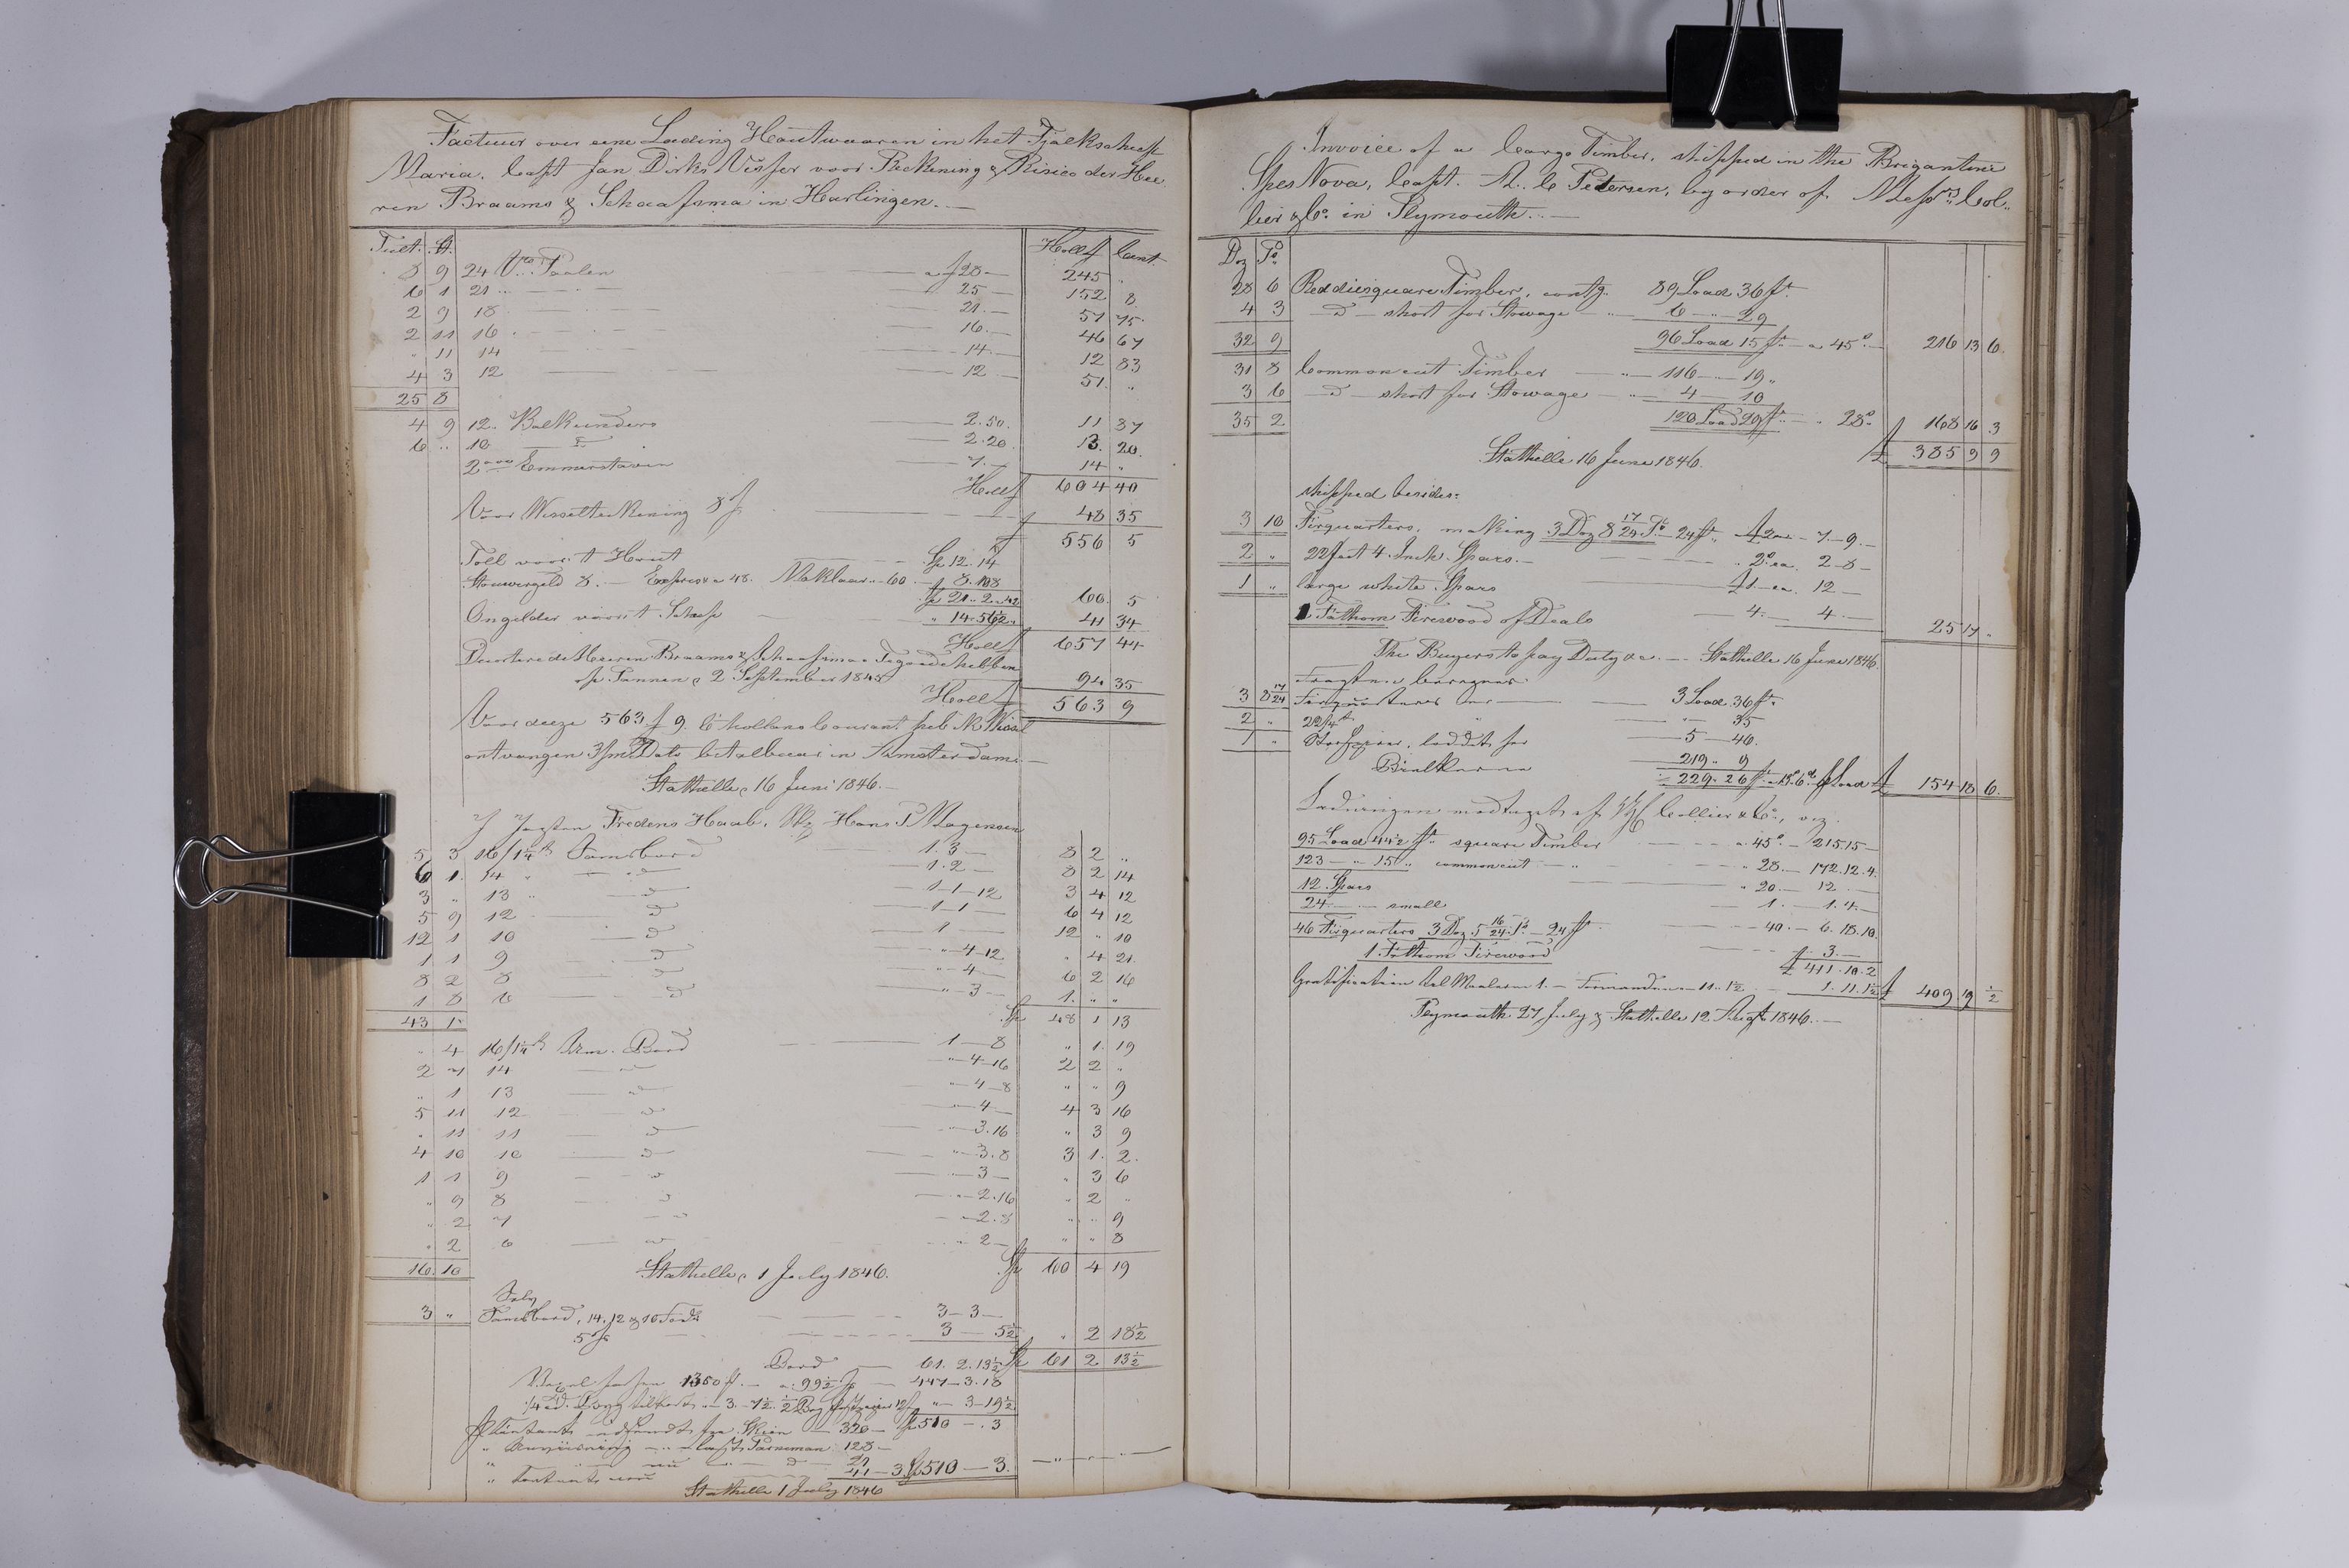 Factuur over eene Lading Houtwaaren in het Tjalkschip
Maria, Capt Jan Dirks Visser voor Rekening & Risico der Hee
ren Braams & Schaafsma in Harlingen.
Tult. St. Holl f Cent.
8 9 24 Paalen a f 28 — 245 "
6 1 21 " — 25 — 152 8
2 9 18 — 21. — 57 75
2 11 16 — 16. — 46 67
" 11 14 — 14 — 12 83
4 3 12 — 12 — 51. "
25 8
4 9 12. Balkunders — 2.50. 11 37
6 " 10 — 2.20 13. 20.
2000 Emmerstaven — 7. — 14 "
Holl f 604 40
Voor Wisselrekening 8 — 48 35
f 556 5
Toll voor 't Hout — Sp 12. 14
Stouwergeld 8. — Expresse 48. Maklaar 60 — 8. 108
Sp 21. 2 100. 5
Ongelder voor 't Schip — " 14. 41 34
Holl f 657 44
de Heeren Braams & Schaafsma Tegoed hebben
pr 2 September 1845 94 35
Holl f 563 9
Voor deeze 563 f 9 C hollans Courant heb ik Wissel
ontvangen 3/m Dato betalbaar in Amsterdam. —
Stathelle, 16 Juni 1846. —
Jagten Fredens Haab, Hans P Magensen
5 3 16/1¼ Tamsbord — 1. 3 — 8 2 "
6 1. 14 " — d — 1. 2 — 8 2 14
3 " 13 " — d — 1 — 1 — 12 3 4 12
5 9 12 — d — 1 — 1 — 6 4 12
12 1 10 — d — 1 — 12 " 10
1 1 9 — d — " — 4 — 12 " 4 21.
8 2 8 — d — " — 4 — 6 2 16
1 8 6 — d — " — 3 — 1. " "
43 1 Sp 48 1 13
" 4 16/1¼ Bord — 1 — 8 " 1. 19
2 7 14 — d — " — 4 — 16 2 2 "
" 1 13 — d — " — 4 — 8 " " 9
5 11 12 — d — " — 4 — 4 3 16
" 11 11 — d — " — 3. 16 " 3 9
4 10 10 — d — " — 3. 8 3 1. 2.
1 1 9 — d — " — 3 — " 3 6
" 9 8 — d — " — 2. 16 " 2 "
" 2 7 — d — " — 2. 8 " " 9
" 2 6 — d — " — 2 — " " 8
16. 10 Stathelle, 1 July 1846. Sp 60 4 19
3 " Tamsbord, 14, 12 & 10 — 3 — 3 —
3 — 5½ " 2 18½
Bord — 61. 2. 13½ Sp 61 2 13½
1350 f. — a 99½ — 447 — 3. 18
3 — 19½
fra Skien — 320 — Sp 510 — . 3
Anviisning — Capt Parneman 128 —
nu — d — 21
nu 41 — 3 Sp 510 — 3.
Stathelle 1 July 1846
Invoice of a Cargo Timber, shipped in the Brigantine
Spes Nova, Capt. A. C Petersen, by order of Messrs Col=
lier & Co. in Plymouth. —
Doz Ps
28 6 Reddiesquare Timber, contg. 89 Load 36 ft.
4 3 — d — short for Stowage — 6 — " 29
32 9 96 Load 15 ft — a 45s. — 216 13 6.
31 8 Commoncut Timber — " — 116 — " 19 "
3 6 — d — short for Stowage — " — 4 — 10
35 2 120 Load 29 ft — " 28s. 168 16 3
Stathelle 16 June 1846. £ 385 9 9
shipped besides:
3 10 Firquarters, making 3 Doz 8 17/24 Ps — 24 ft " — 7. — 9. —
2 " 22 feet 4 Inch. Spars. — " 2s. ea. 2 — 8 —
1 " large white Spars £1. — ea. 12 —
1 Fathom Firewood of Deals 4. — 4. — 25 17 "
The Buyers to pay Duty &c. — Stathelle 16 June 1846.
Fragten beregnes:
3 8 17/24 Firquarteres — 3 Load 36 ft.
2 " 22/4 — " — 35
1 " laddet for — 5 — 40.
Bielkerne 219 " 9
229 " 26 ft — 13s. 6d. pr Load £ 154 18 6.
Ladningen modtaget af Collier & Co., viz.
95 Load 44½ ft. square Timber — a 45s. — 215 15 —
123 — " 15 " commoncut — " — " 28. — 172. 12. 4.
12 Spars — " 20. — 12. —
24 — small — 1. — 1. 4. —
46 Firquarters 3 Doz. 5 16/24 Ps — 24 ft — 40. — 6. 18. 10.
1 Fathom Firewood — £ 3. —
£ 411. 10. 2
Gratification til Maaleren 1. — Formanden — 11. 1½ — 1. 11. 1½ £ 409. 19 ½
Plymouth 27 July & Stathelle 12 Augt 1846. —